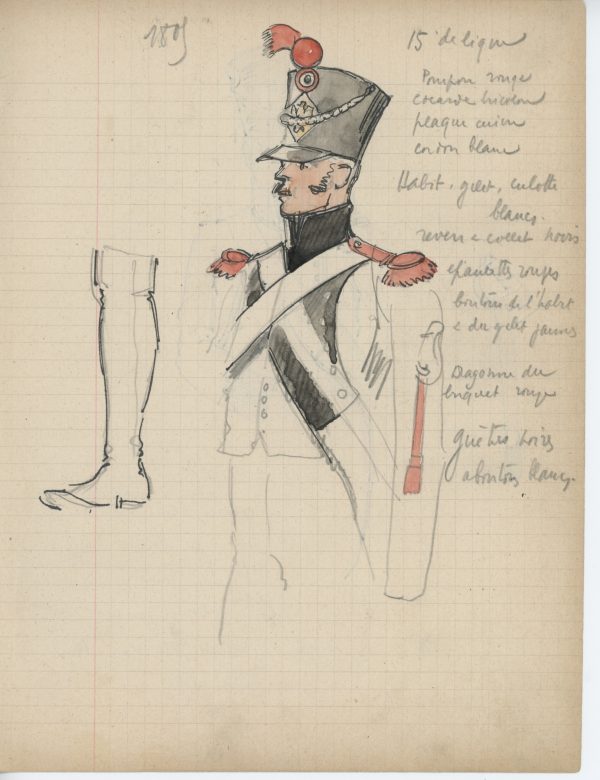 1805
15 de ligne
Pompon rouge
cocarde tricolore
plaque cuivre
cordon blanc
Habit, gilet, culotte
blancs.
revers & collet noirs
épaulettes rouges
boutons de l'habit
& du gilet jaunes
Dragonne du
briquet rouge
guêtres noires
à boutons blancs.